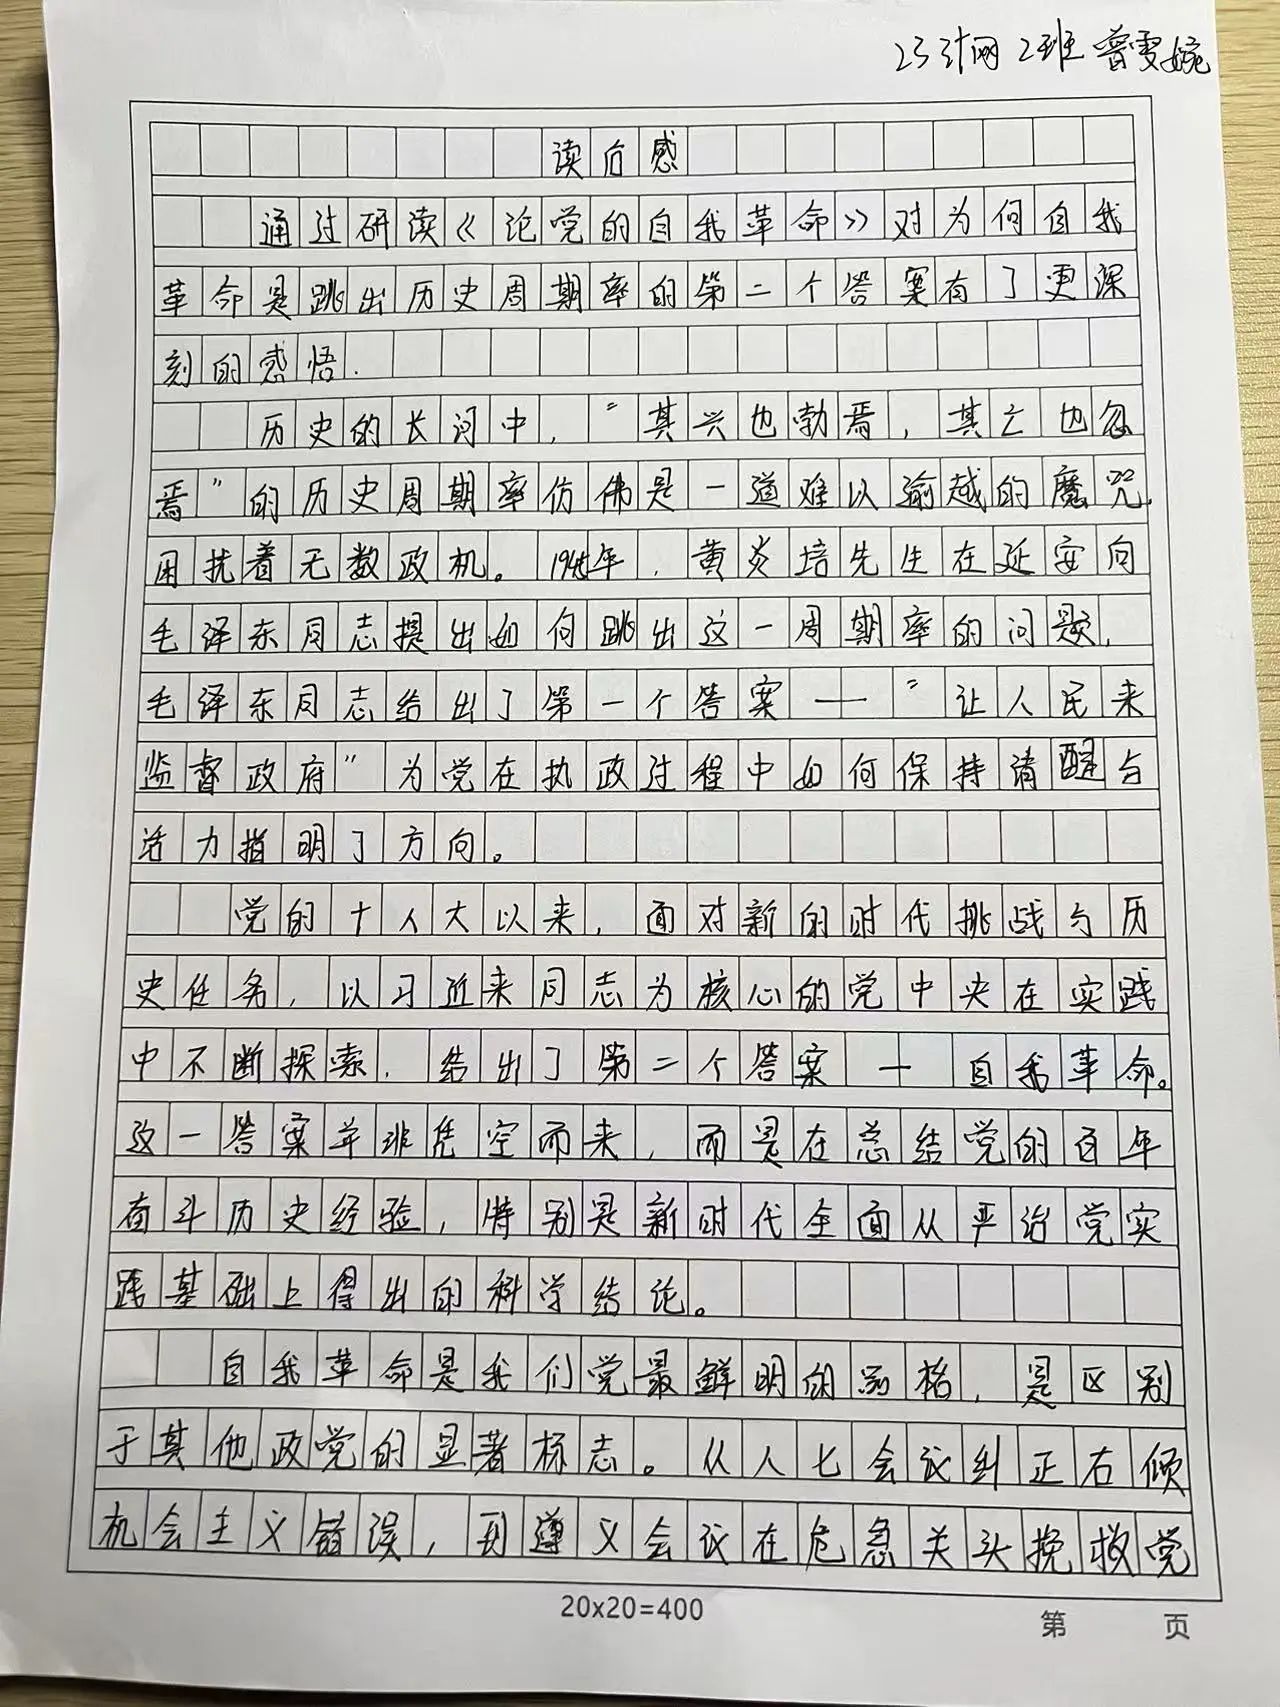 23计网2班 曾雯婉
读后感
通过研读《论党的自我革命》对为何自我
革命是跳出历史周期率的第二个答案有了更深
刻的感悟.
历史的长河中,“其兴也勃焉,其亡也忽
焉”的历史周期率仿佛是一道难以逾越的魔咒
困扰着无数政机。1945年,黄炎培先生在延安向
毛泽东同志提出如何跳出这一周期率的问题,
毛泽东同志给出了第一个答案——“让人民来
监督政府”为党在执政过程中如何保持清醒与
活力指明了方向。
党的十八大以来,面对新的时代挑战与历
史任务,以习近来同志为核心的党中央在实践
中不断探索,给出了第二个答案—自我革命。
这一答案并非凭空而来,而是在总结党的百年
奋斗历史经验,特别是新时代全面从严治党实
践基础上得出的科学结论。
自我革命是我们党最鲜明的品格,是区别
于其他政党的显著标志。从八七会议纠正右倾
机会主义错误,到遵义会议在危急关头挽救党
20x20=400
第 页